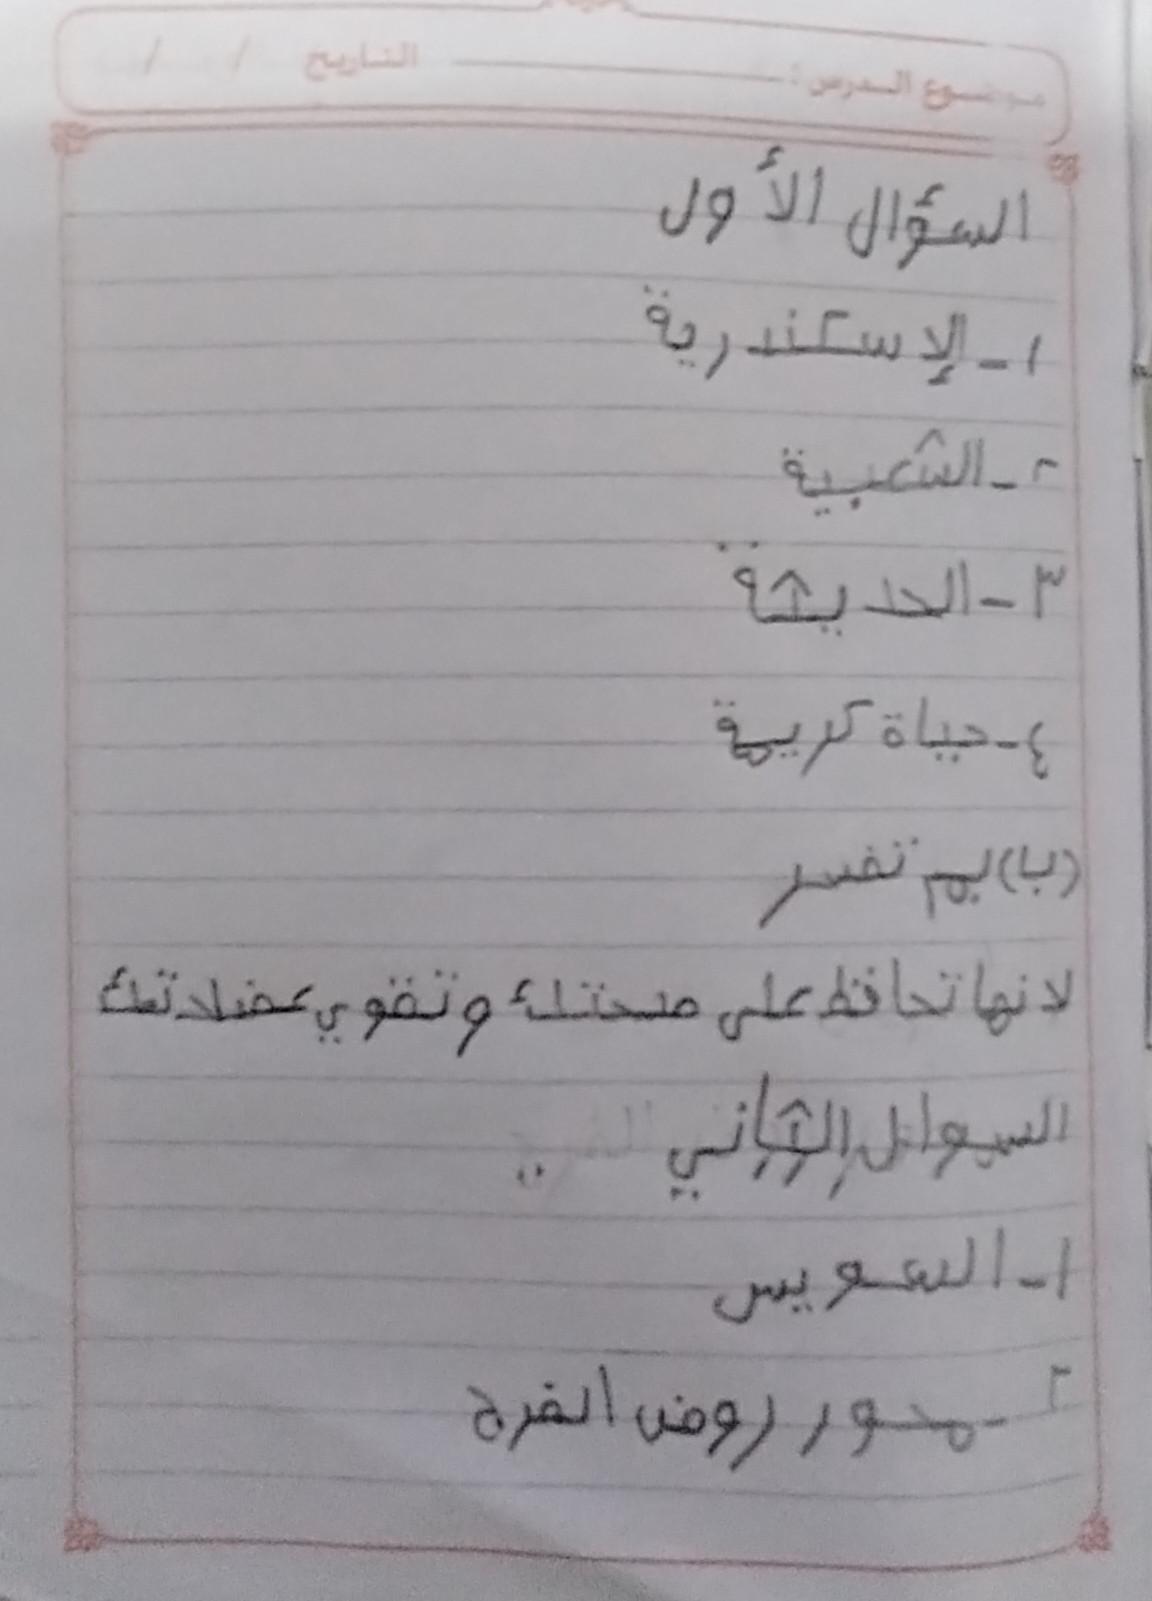 موضوع الدرس : التاريخ / /
السؤال الأول
١ - الإسكندرية
٢ - الشعبية
٣ - الحديثة
٤ - حياة كريمة
(ب) بم تفسر
لانها تحافظ على صحتك وتقوي عضلاتك
السوال الثاني
١ - السويس
٢ - محور روض الفرج